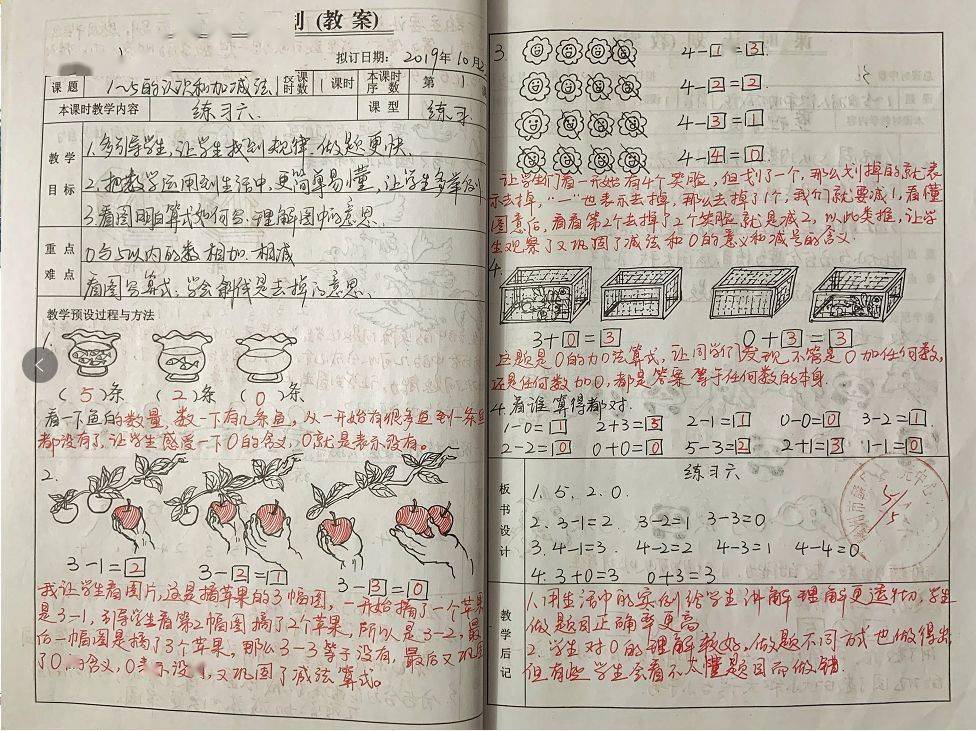 划(教案)
拟订日期：2019年10月
课题 1~5的认识和加减法 课时数 1课时 本课时序数 第
本课时教学内容 练习六 课型 练习
教学目标
1.多引导学生,让学生找到规律,做题更快
2.把数学运用到生活中,更简单易懂,让学生多举例
3.看图明白算式如何写,理解图中的意思.
重点难点
0与5以内的数相加.相减
看图写算式.学会斜线是去掉的意思.
教学预设过程与方法
1.
(5)条 (2)条 (0)条
看一下鱼的数量,数一下有几条鱼,从一开始有很多鱼到一条鱼
都没有了.让学生感受一下0的含义,0就是表示没有。
2.
3-1=2 3-2=1 3-3=0
我让学生看图片,这是摘苹果的3幅图,一开始摘了一个苹果
是3-1,引导学生看第2幅图摘了2个苹果,所以是3-2,最
后一幅图是摘了3个苹果,那么3-3等于没有,最后又巩固
了0的含义,0表示没有,又巩固了减法算式。
3.
4-1=3
4-2=2
4-3=1
4-4=0
让学生们看一开始有4个笑脸,但划了一个,那么划掉的就表
示去掉,"一"也表示去掉,那么去掉了1个,我们就要减1,看懂
图意后,看看第2个去掉了2个笑脸就是减2,以此类推,让学
生观察了又巩固了减法和0的意义和减号的含义.
4.
3+0=3 0+3=3
这题是0的加法算式,让同学们发现,不管是0加任何数,
还是任何数加0,都是答案等于任何数的本身.
4.看谁算得都对.
1-0=1 2+3=5 2-1=1 0-0=0 3-2=1
2-2=0 0+0=0 5-3=2 2+1=3 1-1=0
板书设计
练习六
1. 5, 2. 0.
2. 3-1=2 3-2=1 3-3=0
3. 4-1=3. 4-2=2 4-3=1 4-4=0
4. 3+0=3 0+3=3
教学后记
1.用生活中的实例给学生讲解理解更透切,学生
做题目正确率更高
2.学生对0的理解较好,做题不同方式也做得出
但有些学生会看不太懂题目而做错.